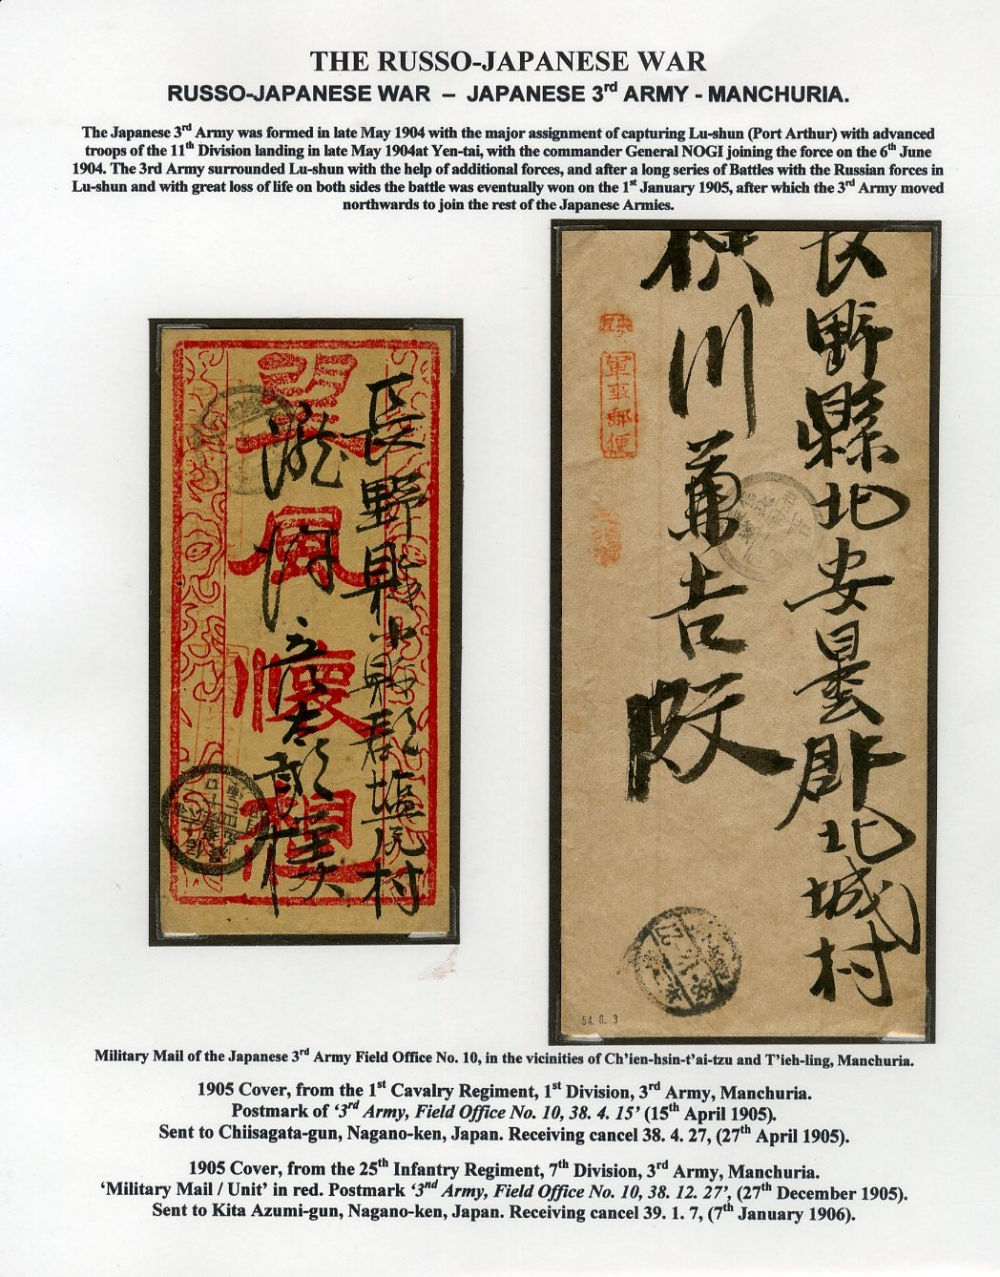 THE RUSSO-JAPANESE WAR
RUSSO-JAPANESE WAR – JAPANESE 3rd ARMY - MANCHURIA.
The Japanese 3rd Army was formed in late May 1904 with the major assignment of capturing Lu-shun (Port Arthur) with advanced
troops of the 11th Division landing in late May 1904at Yen-tai, with the commander General NOGI joining the force on the 6th June
1904. The 3rd Army surrounded Lu-shun with the help of additional forces, and after a long series of Battles with the Russian forces in
Lu-shun and with great loss of life on both sides the battle was eventually won on the 1st January 1905, after which the 3rd Army moved
northwards to join the rest of the Japanese Armies.
長野縣小縣郡塩尻村
望風懷想
長野縣北安曇郡北城村
横川兼吉殿
軍事郵便
54. 6. 3
Military Mail of the Japanese 3rd Army Field Office No. 10, in the vicinities of Ch'ien-hsin-t'ai-tzu and T'ieh-ling, Manchuria.
1905 Cover, from the 1st Cavalry Regiment, 1st Division, 3rd Army, Manchuria.
Postmark of ‘3rd Army, Field Office No. 10, 38. 4. 15’ (15th April 1905).
Sent to Chiisagata-gun, Nagano-ken, Japan. Receiving cancel 38. 4. 27, (27th April 1905).
1905 Cover, from the 25th Infantry Regiment, 7th Division, 3rd Army, Manchuria.
‘Military Mail / Unit’ in red. Postmark ‘3nd Army, Field Office No. 10, 38. 12. 27’, (27th December 1905).
Sent to Kita Azumi-gun, Nagano-ken, Japan. Receiving cancel 39. 1. 7, (7th January 1906).